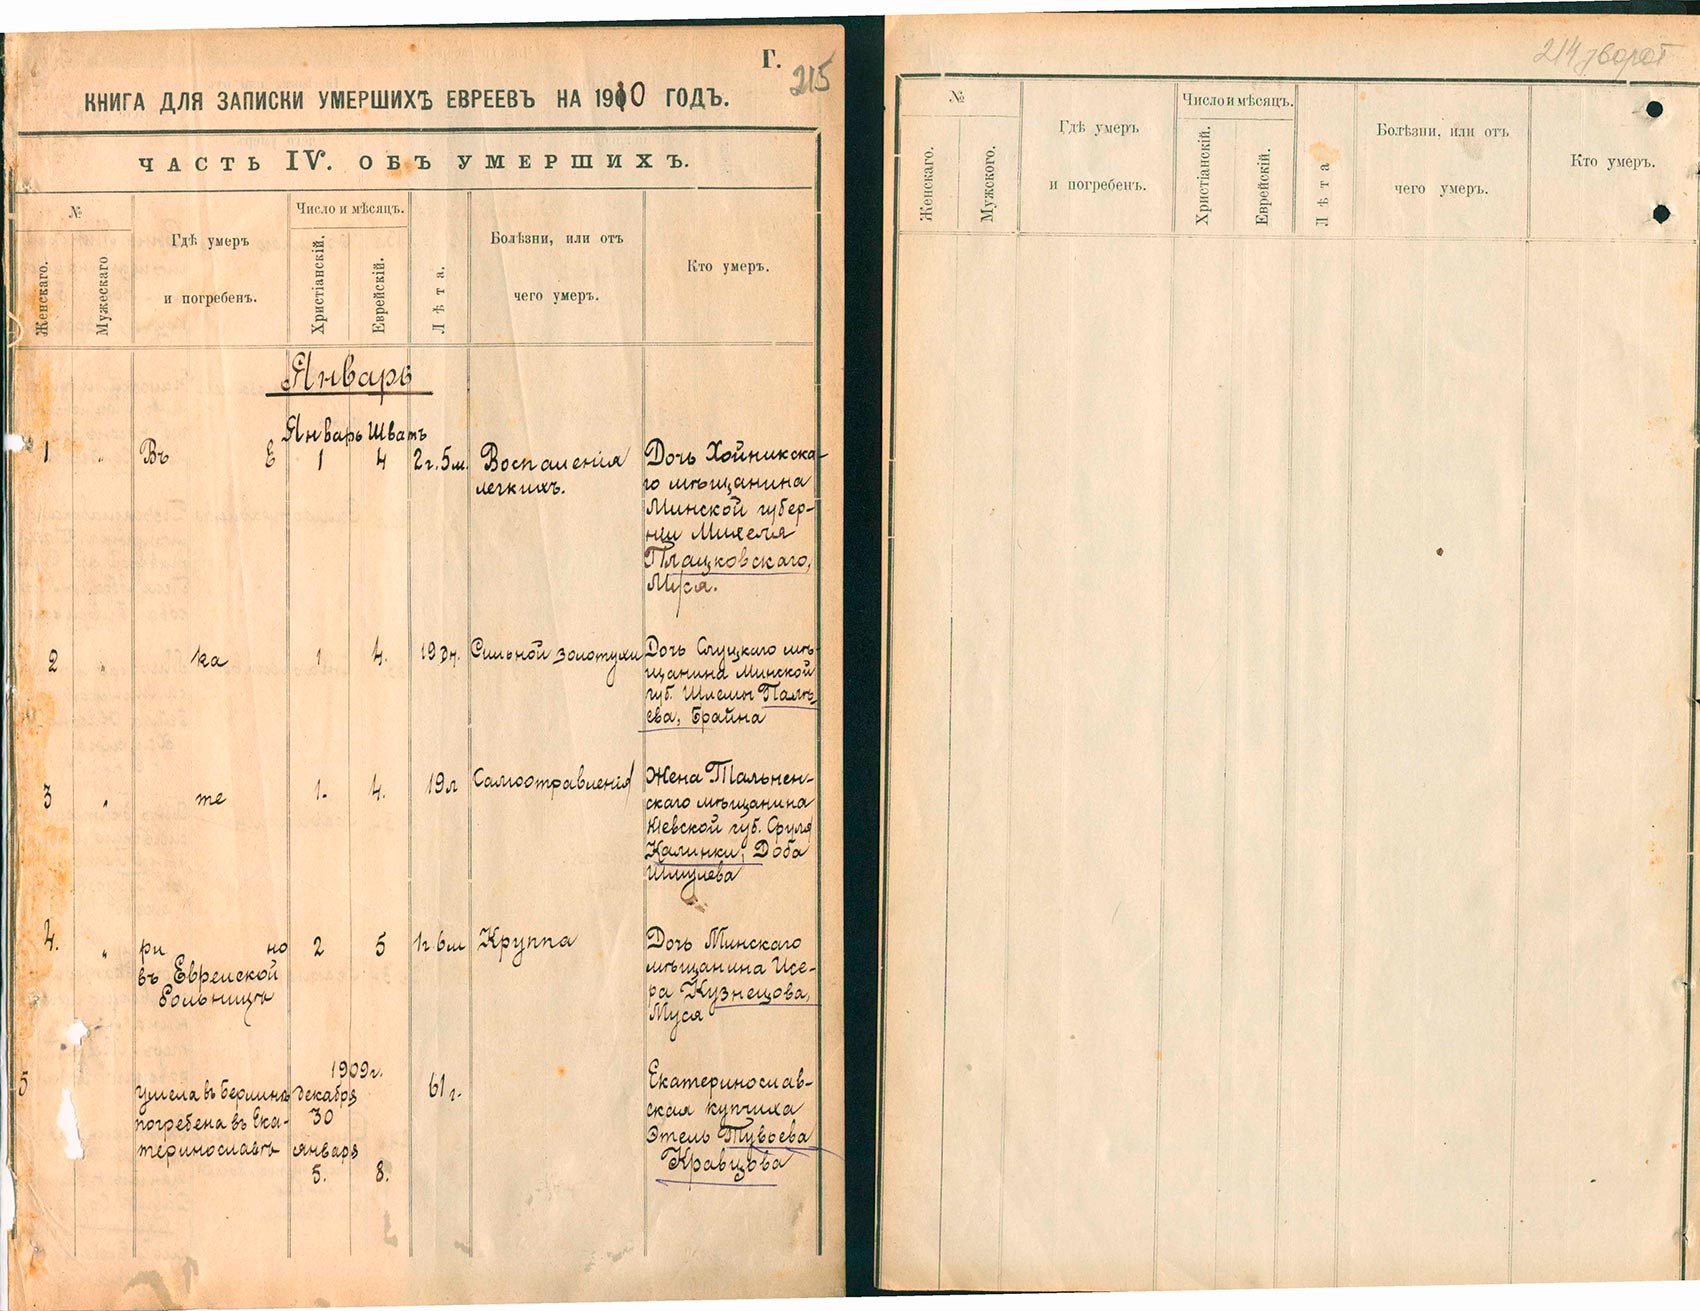 Г.
215
КНИГА ДЛЯ ЗАПИСКИ УМЕРШИХЪ ЕВРЕЕВЪ НА 1910 ГОДЪ.
ЧАСТЬ IV. ОБЪ УМЕРШИХЪ.
№
Женскаго.
Мужескаго
Гдѣ умеръ
и погребенъ.
Число и мѣсяцъ.
Христіанскій.
Еврейскій.
Лѣта.
Болѣзни, или отъ
чего умеръ.
Кто умеръ.
Январь
Январь Шватъ
1 " Въ Е 1 4 2 г. 5 м. Воспаленія
легкихъ.
Дочь Хойникска-
го мѣщанина
Минской губер-
ніи Михеля
Плацковскаго,
Муся.
2 " ка 1 4. 19 дн. Сильной золотухи
Дочь Слуцкаго мѣ-
щанина Минской
губ. Шлемы Палѣ-
ева, Брайна
3 " те 1. 4. 19 л Самоотравленія
Жена Тальнен-
скаго мѣщанина
Кіевской губ. Сруля
Калинки, Доба
Шмулева
4. " ри но 2 5 1 г 6 м Круппа
въ Еврейской
больницѣ
Дочь Минскаго
мѣщанина Исе-
ра Кузнецова,
Муся
5
Умерла въ Берлинѣ
погребена въ Ека-
теринославѣ
1909 г.
Декабря
30
января
5. 8.
61 г.
Екатеринослав-
ская купчиха
Этель Тувьева
Кравцова
214 зворот
№
Женскаго.
Мужского.
Гдѣ умеръ
и погребенъ.
Число и мѣсяцъ.
Христіанскій.
Еврейскій.
Лѣта
Болѣзни, или отъ
чего умеръ.
Кто умеръ.